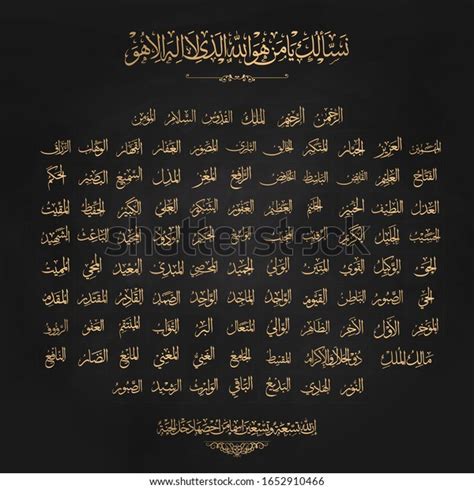 نسألك يا من هو الله الذي لا إله إلا هو
الرحمن الرحيم الملك القدوس السلام المؤمن
المهيمن العزيز الجبار المتكبر الخالق البارئ المصور الغفار القهار الوهاب الرزاق
الفتاح العليم القابض الباسط الخافض الرافع المعز المذل السميع البصير الحكم
العدل اللطيف الخبير الحليم العظيم الغفور الشكور العلي الكبير الحفيظ المقيت
الحسيب الجليل الكريم الرقيب المجيب الواسع الحكيم الودود المجيد الباعث الشهيد
الحق الوكيل القوي المتين الولي الحميد المحصي المبدئ المعيد المحيي المميت
الحي الصبور الباطن القيوم الواجد الماجد الواحد الصمد القادر المقتدر المقدم
المؤخر الأول الآخر الظاهر الوالي المتعال البر التواب المنتقم العفو الرؤوف
مالك الملك ذو الجلال والإكرام المقسط الجامع الغني المغني المانع الضار النافع
النور الهادي البديع الباقي الوارث الرشيد الصبور
إن لله تسعة وتسعين اسما من أحصاها دخل الجنة
shutterstock.com · 1652910466